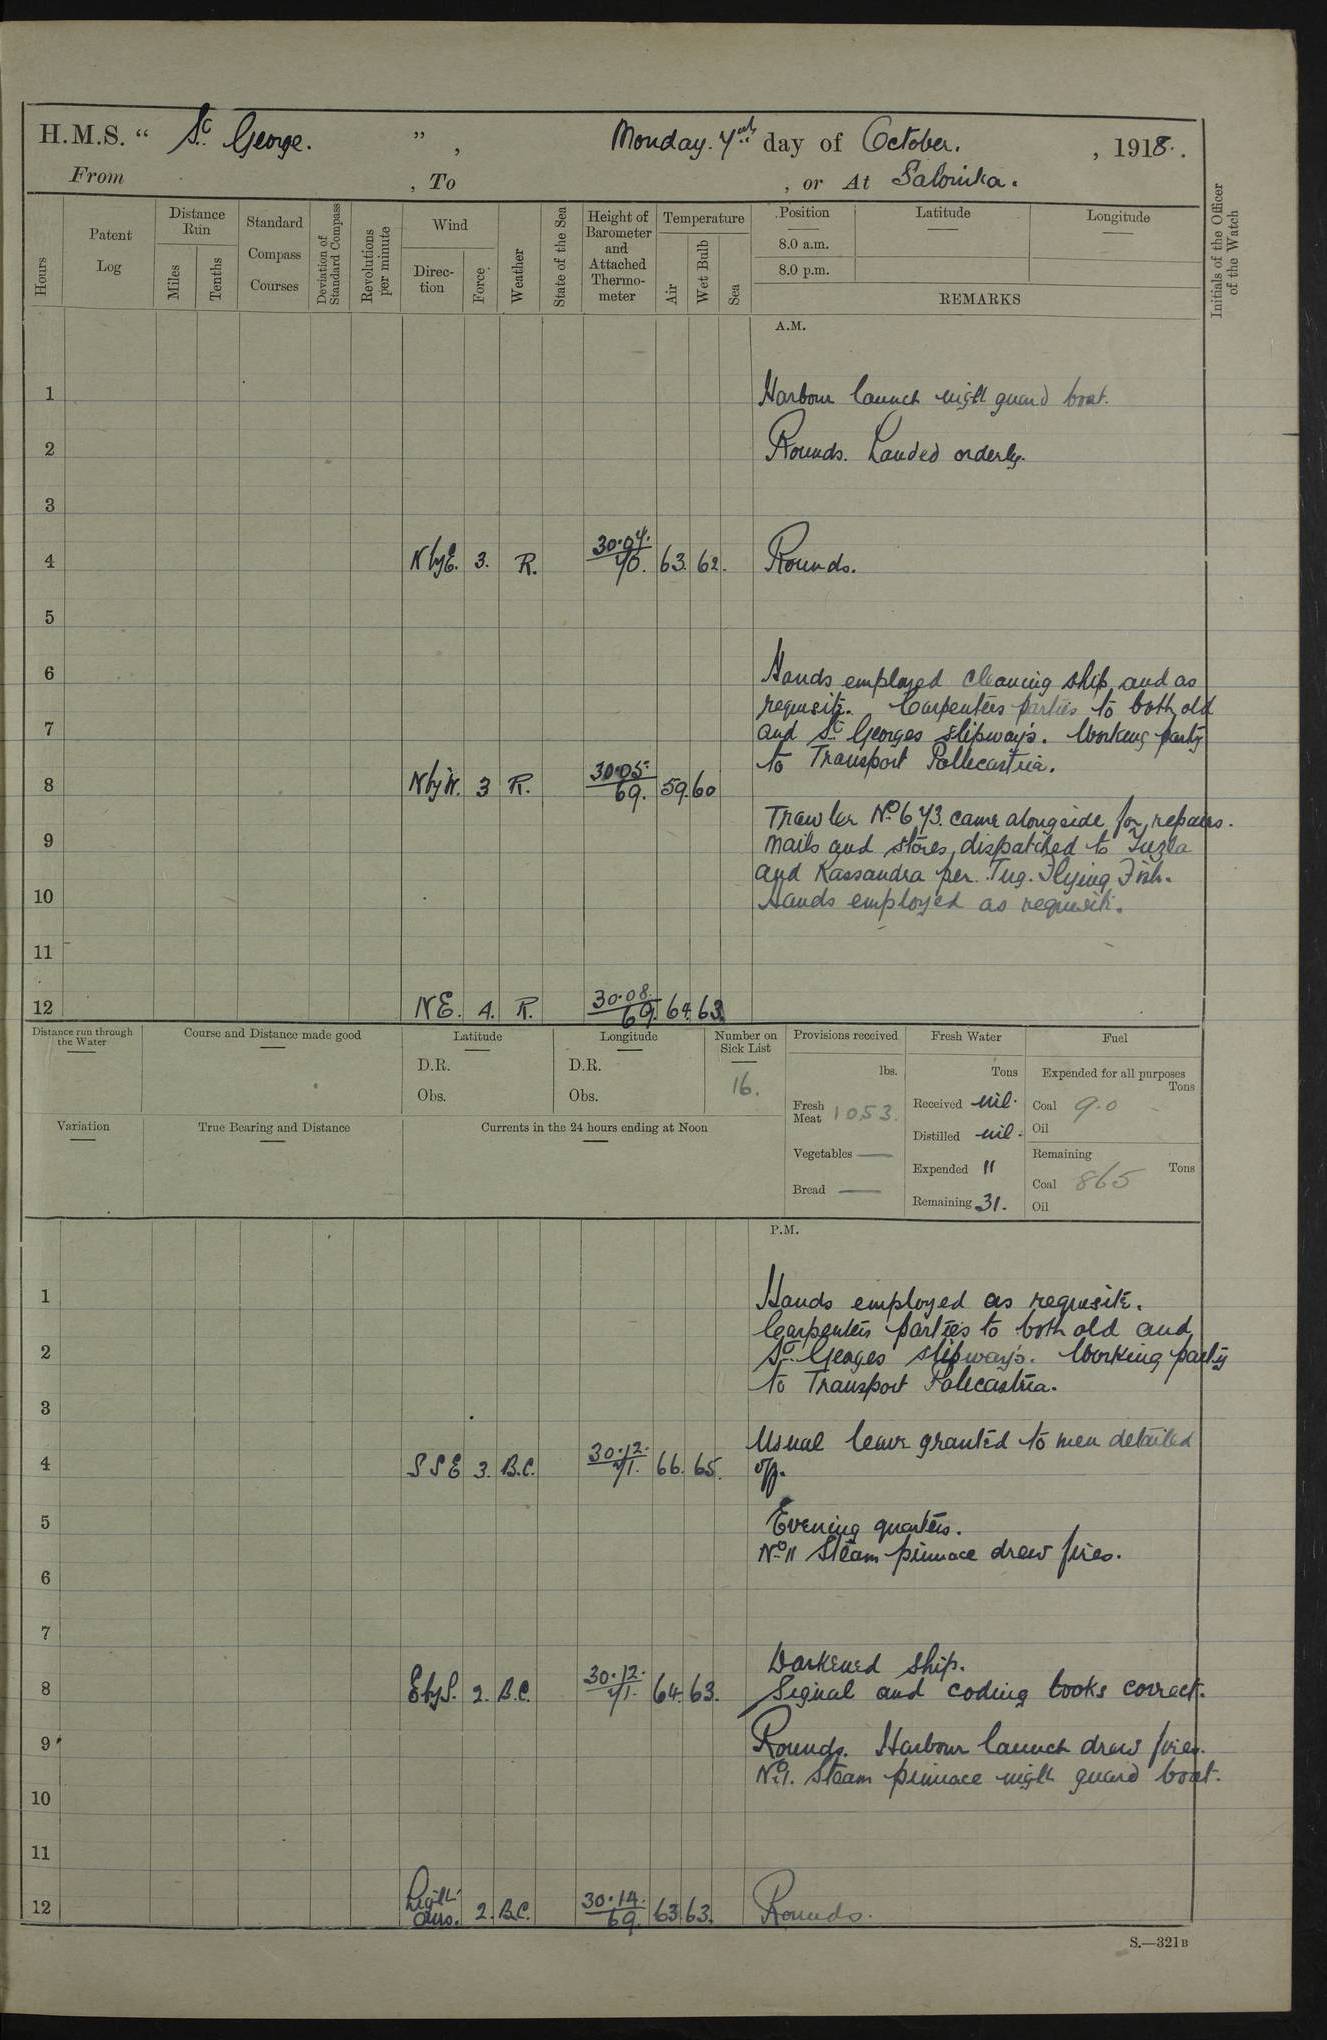 H.M.S. “ St George. ” , Monday. 7th day of October. , 1918.
From , To , or At Salonika.
Hours
Patent Log
Distance Run
Miles
Tenths
Standard Compass Courses
Deviation of Standard Compass
Revolutions per minute
Wind
Direction
Force
Weather
State of the Sea
Height of Barometer and Attached Thermometer
Temperature
Air
Wet Bulb
Sea
Position
8.0 a.m.
8.0 p.m.
Latitude
Longitude
REMARKS
Initials of the Officer of the Watch
A.M.
1 Harbour launch night guard boat.
2 Rounds. Landed orderly.
3
4 N by E. 3. R. 30.07. 70. 63. 62. Rounds.
5
6 Hands employed cleaning ship and as
requisite. Carpenters parties to both old
7 and St Georges slipways. Working party
to Transport
8 N by W. 3 R. 30.05. 69. 59. 60
Trawler No 673. came alongside for repairs.
9 Mails and stores dispatched to Tuzla
and Kassandra per Tug. Flying Fish.
10 Hands employed as requisite.
11
12 NE. 4. R. 30.08. 69. 64. 63.
Distance run through the Water
Course and Distance made good
Latitude
D.R.
Obs.
Longitude
D.R.
Obs.
Number on Sick List
16.
Provisions received
lbs.
Fresh Meat 1053.
Vegetables —
Bread —
Fresh Water
Tons
Received nil.
Distilled nil.
Expended 11
Remaining 31.
Fuel
Expended for all purposes
Tons
Coal 9.0
Oil
Remaining
Tons
Coal 865
Oil
Variation
True Bearing and Distance
Currents in the 24 hours ending at Noon
P.M.
1 Hands employed as requisite.
Carpenters parties to both old and
2 St. Georges slipways. Working party
to Transport
3
Usual leave granted to men detailed
4 SSE 3. B.C. 30.12. 71. 66. 65. off.
5 Evening quarters.
No 11 Steam pinnace drew fires.
6
7
Darkened ship.
8 E by S. 2. B.C. 30.12. 71. 64. 63. Signal and coding books correct.
9 Rounds. Harbour launch drew fires.
No 1. Steam pinnace night guard boat.
10
11
12 Light airs. 2. B.C. 30.14. 69. 63 63. Rounds.
S.—321B